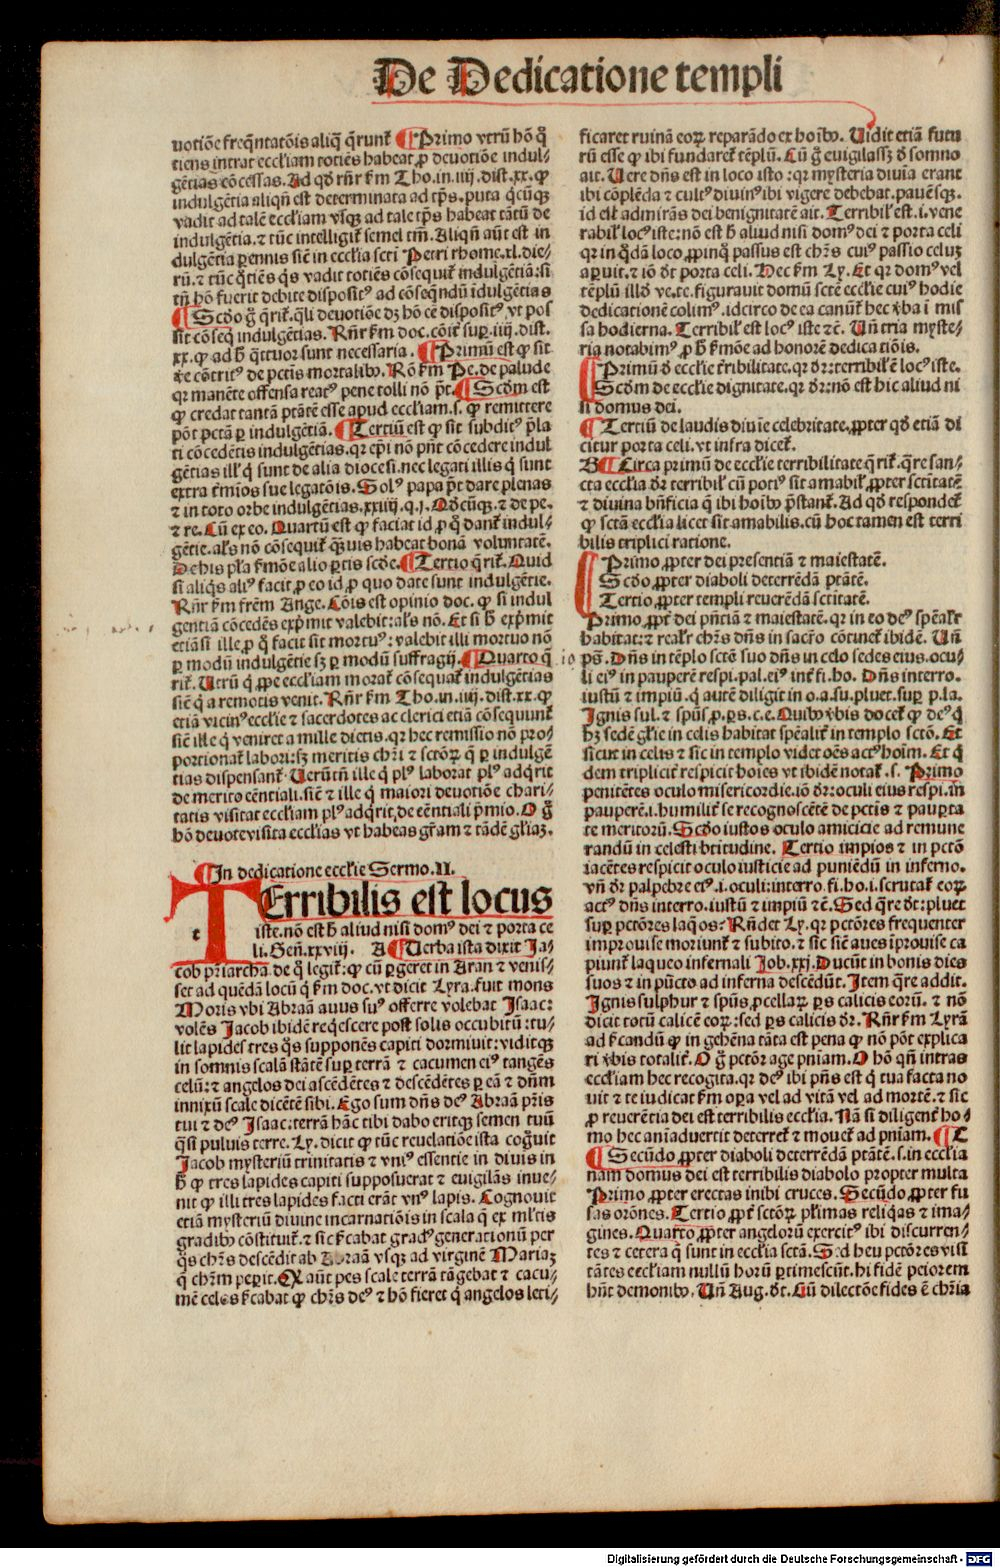 De Dedicatione templi
uotiõe freq̃ntatõis aliq̃ q̃runt᷑ Primo vtrũ hõ q̃
tiens intrat eccl̃iam totiẽs habeat ꝓ deuotiõe indul⸗
gẽtias cõcessas. Ad qđ rñr ẜm Tho. in. iiij. dist. xx. ꝙ
indulgẽtia aliqñ est determinata ad tp̃s. puta q̃cũqꝫ
vadit ad talẽ eccl̃iam vsqꝫ ad tale tp̃s habeat tãtũ de
indulgẽtia. ⁊ tũc intelligit᷑ semel tm̃. Aliqñ aũt est in
dulgẽtia ꝑennis siẽ in eccl̃ia scti Petri rhome. xl. die⸗
rũ. ⁊ tũc q̃tiẽs q̃s vadit totiẽs cõsequit᷑ indulgẽtiã: si
tñ hõ fuerit debite disposit⁹ ad cõseq̃ndũ ĩdulgẽtias
Scđo g̃ q̃rit᷑. q̃li deuotiõe dꝫ hõ eẽ disposit⁹ vt pos
sit cõseq̃ indulgẽtias. Rñr ẜm doc. cõit᷑ suꝑ. iiij. dist.
xx. ꝙ ad h̃ q̃tuor sunt necessaria. Primũ est ꝙ sit
ve cõtrit⁹ de pctis mortalibꝰ. Rõ ẜm Pe. de palude
qꝛ manẽte offensa reat⁹ pene tolli nõ pt̃. Scđm est
ꝙ credat tantã ptãtẽ esse apud eccl̃iam. s. ꝙ remittere
põt pctã ꝑ indulgẽtiã. Tertiũ est ꝙ sit subdit⁹ p̃la
ti cõcedẽtis indulgẽtias. qꝛ ep̃i nõ pñt cõcedere indul
gẽtias ill᷑ q̃ sunt de alia diocesi. nec legati illis q̃ sunt
extra t᷑mĩos sue legatõis. Sol⁹ papa pt̃ dare plenas
⁊ in toto orbe indulgẽtias. xxiiij. q. j. Qđcũqꝫ. ⁊ de pe.
⁊ re. Cũ ex eo. Quartũ est ꝙ faciat id ꝓ q̃ dant᷑ indul⸗
gẽtie. al's nõ cõsequit᷑ q̃uis habeat bonã voluntatẽ.
De his pl'a ẜmõe alio ꝑtis scđe. Tertio q̃rit᷑. Quid
si aliq̃s ali⁹ facit ꝓ eo id ꝓ quo date sunt indulgẽtie.
Rñr ẜm frẽm Ange. Cõis est opinio doc. ꝙ si indul
gentiã cõcedẽs exp̃mit valebit: al's nõ. Et si h̃ exp̃mit
etiã si ille ꝓ q̃ facit sit mortu⁹: valebit illi mortuo nõ
ꝑ modũ indulgẽtie sꝫ ꝑ modũ suffragij. Quarto q̃
rit᷑. Utrũ q̃ ꝓpe eccl̃iam morat᷑ cõsequat᷑ indulgẽtias
siẽ q̃ a remotis venit. Rñr ẜm Tho. in. iiij. dist. xx. ꝙ
etiã vicini eccl̃ie ⁊ sacerdotes ac clerici etiã cõsequunt᷑
siẽ ille q̃ veniret a mille dietis. qꝛ hec remissio nõ pro⸗
portionat᷑ labori: sꝫ meritis chr̃i ⁊ sctõꝝ q̃ ꝑ indulgẽ
tias dispensant᷑. Uerũtñ ille q̃ pl⁹ laborat pl⁹ adq̃rit
de merito eẽntiali. siẽ ⁊ ille q̃ maiori deuotiõe chari⸗
tatis visitat eccl̃iam pl⁹ adq̃rit de eẽntiali p̃mio. O g̃
hõ deuote visita eccl̃ias vt habeas gr̃am ⁊ tãdẽ gl̃iaꝫ.
In dedicatione eccl̃ie Sermo. II.
TErribilis est locus
t iste. nõ est h̃ aliud nisi dom⁹ dei ⁊ porta ce
li. Geñ. xxviij. A Uerba ista dixit Ja⸗
cob pr̃iarcha. de q̃ legit᷑: ꝙ cũ ꝑgeret in Aran ⁊ venis⸗
set ad quẽdã locũ q̃ ẜm doc. vt dicit Lyra. fuit mons
Moris vbi Abraã auus su⁹ offerre volebat Isaac:
volẽs Jacob ibidẽ reqescere post solis occubitũ: tu⸗
lit lapides tres q̃s supponẽs capiti dormiuit: viditqꝫ
in somnis scalã stãtẽ suꝑ terrã ⁊ cacumen ei⁹ tangẽs
celũ: ⁊ angelos dei ascẽdẽtes ⁊ descẽdẽtes ꝑ eã ⁊ dñm
innixũ scale dicẽtẽ sibi. Ego sum dñs de⁹ Abraã pr̃is
tui ⁊ de⁹ Isaac: terrã hãc tibi dabo eritqꝫ semen tuũ
q̃si puluis terre. Ly. dicit ꝙ tũc reuelatiõe ista cog̃uit
Jacob mysteriũ trinitatis ⁊ vni⁹ essentie in diuis in
h̃ ꝙ tres lapides capiti supposuerat ⁊ euigilãs inue⸗
nit ꝙ illi tres lapides facti erãt vn⁹ lapis. Cognouit
etiã mysteriũ diuine incarnatiõis in scala q̃ ex ml'tis
gradibꝰ cõstituit᷑. ⁊ sic ẜcabat grad⁹ generationũ per
q̃s chr̃s descẽdit ab Abraã vsqꝫ ad virginẽ Mariaꝫ
q̃ chr̃m peꝑit. Qꝛ aũt pes scale terrã tãgebat ⁊ cacu⸗
mẽ celos ẜcabat ꝙ chr̃s de⁹ ⁊ hõ fieret q̃ angelos leti⸗
ficaret ruinã eoꝝ reparãdo et hoĩbꝰ. Uidit etiã futu
rũ esse ꝙ ibi fundaret᷑ tẽplũ. Cũ g̃ euigilassꝫ đ somno
ait. Uere dñs est in loco isto: qꝛ mysteria diuia erant
ibi cõplẽda ⁊ cult⁹ diuin⁹ ibi vigere debebat. pauẽsqꝫ.
id est admirãs dei benignitatẽ ait. Terribil᷑ est. i. vene
rabil᷑ loc⁹ iste: nõ est h̃ aliud nisi dom⁹ dei ⁊ porta celi
qꝛ in q̃dã loco ꝓpinq̃ passus est chr̃s cui⁹ passio celuꝫ
aꝑuit. ⁊ iõ đr porta celi. Hec ẜm Ly. Et qꝛ dom⁹ vel
tẽplũ illđ ve. te. figurauit domũ sctẽ eccl̃ie cui⁹ hodie
dedicationẽ colim⁹. idcirco de ea canũt᷑ hec v̓ba ĩ mis
sa hodierna. Terribil᷑ est loc⁹ iste ⁊c̃. Uñ tria myste⸗
ria notabim⁹ ꝓ h̃ ẜmõe ad honorẽ dedicatiõis.
Primũ đ eccl̃ie t᷑ribilitate. qꝛ đr: terribil᷑ ẽ loc⁹ iste.
Scđm de eccl̃ie dignitate. qꝛ đr: nõ est hic aliud ni
si domus dei.
Tertiũ de laudis diuĩe celebritate. ꝓpter qđ etiã di
citur porta celi. vt infra dicet᷑.
B Circa primũ de eccl̃ie terribilitate q̃rit᷑. q̃re san⸗
cta eccl̃ia đr terribil᷑ cũ poti⁹ sit amabil᷑. ꝓpter sctitatẽ
⁊ diuina bñficia q̃ ibi hoĩbꝰ p̃stant᷑. Ad qđ respondet᷑
ꝙ sctã eccl̃ia licet sit amabilis. cũ hoc tamen est terri
bilis triplici ratione.
Primo ꝓpter dei presentiã ⁊ maiestatẽ.
Scđo ꝓpter diaboli deterrẽdã ptãtẽ.
Tertio ꝓpter templi reuerẽdã sctitatẽ.
Primo ꝓpt᷑ dei pñtiã ⁊ maiestatẽ. qꝛ in eo de⁹ spẽal'r
habitat: ⁊ real'r chr̃s dñs in sacr̃o cõtinet᷑ ibidẽ. Uñ
ps̃. Dñs in tẽplo sctõ suo dñs in celo sedes eius. ocu⸗
li ei⁹ in pauperẽ respi. pal. ei⁹ int᷑. fi. ho. Dñs interro.
iustũ ⁊ impiũ. q̃ autẽ diligit in o. a. su. pluet. suꝑ p. la.
Ignis sul. ⁊ spũs. ꝓ. ꝑs. c. e. Quibꝰ v̓bis docet᷑ ꝙ de⁹ q̃
hꝫ sedẽ gl̃ie in celis habitat spẽalit᷑ in templo sctõ. Et
sicut in celis ⁊ sic in templo videt oẽs act⁹ hoĩm. Et q̃
dem triplicit᷑ respicit hoĩes vt ibidẽ notat᷑. s. Primo
penitẽtes oculo misericordie. iõ đr: oculi eius respi. in
pauperẽ. i. humilit᷑ se recognoscẽtẽ de pctis ⁊ pauꝑta
te meritorũ. Scđo iustos oculo amicicie ad remune
randũ in celesti btitudine. Tertio impios ⁊ in pctõ
iacẽtes respicit oculo iusticie ad puniẽdũ in inferno.
vñ đr palpebre ei⁹. i. oculi: interro. fi. ho. i. scrutat᷑ eoꝝ
act⁹ dñs interro. iustũ ⁊ impiũ ⁊c̃. Sed q̃re đt: pluet
suꝑ pctõres laq̃os: Rñdet Ly. qꝛ pctõres frequenter
improuise moriunt᷑ ⁊ subito. ⁊ sic siẽ aues ĩprouise ca
piunt᷑ laqueo infernali Job. xxj. Ducũt in bonis dies
suos ⁊ in pũcto ad inferna descẽdũt. Item q̃re addit.
Ignis sulphur ⁊ spũs ꝓcellaꝝ ꝑs calicis eorũ. ⁊ nõ
dicit totũ calicẽ eoꝝ: sed ꝑs calicis đr. Rñr ẜm Lyrã
ad ẜcandũ ꝙ in gehẽna tãta est pena ꝙ nõ põt explica
ri v̓bis totalit᷑. O g̃ pctõr age pniam. O hõ qñ intras
eccl̃iam hec recogita. qꝛ de⁹ ibi pñs est q̃ tua facta no
uit ⁊ te iudicat ẜm oꝑa vel ad vitã vel ad mortẽ. ⁊ sic
ꝓ reuerẽtia dei est terribilis eccl̃ia. Nã si diligent᷑ ho⸗
mo hec anĩaduertit deterret᷑ ⁊ mouet᷑ ad pniam. C
Secũdo ꝓpter diaboli deterrẽdã ptãtẽ. s. in eccl̃ia
nam domus dei est terribilis diabolo propter multa
Primo ꝓpter erectas inibi cruces. Secũdo ꝓpter fu
sas orõnes. Tertio ꝓpt᷑ sctõꝝ pl'imas reliq̃as ⁊ ima⸗
gines. Quarto ꝓpter angelorũ exercit⁹ ibi discurren⸗
tes ⁊ cetera q̃ sunt in eccl̃ia sctã. Sed heu pctõres visi
tãtes eccl̃iam nullũ horũ ꝑtimescũt. hi fidẽ peiorem
hñt demonibꝰ. Uñ Aug. đt. Cũ dilectõe fides ẽ chr̃ia
Digitalisierung gefördert durch die Deutsche Forschungsgemeinschaft - DFG